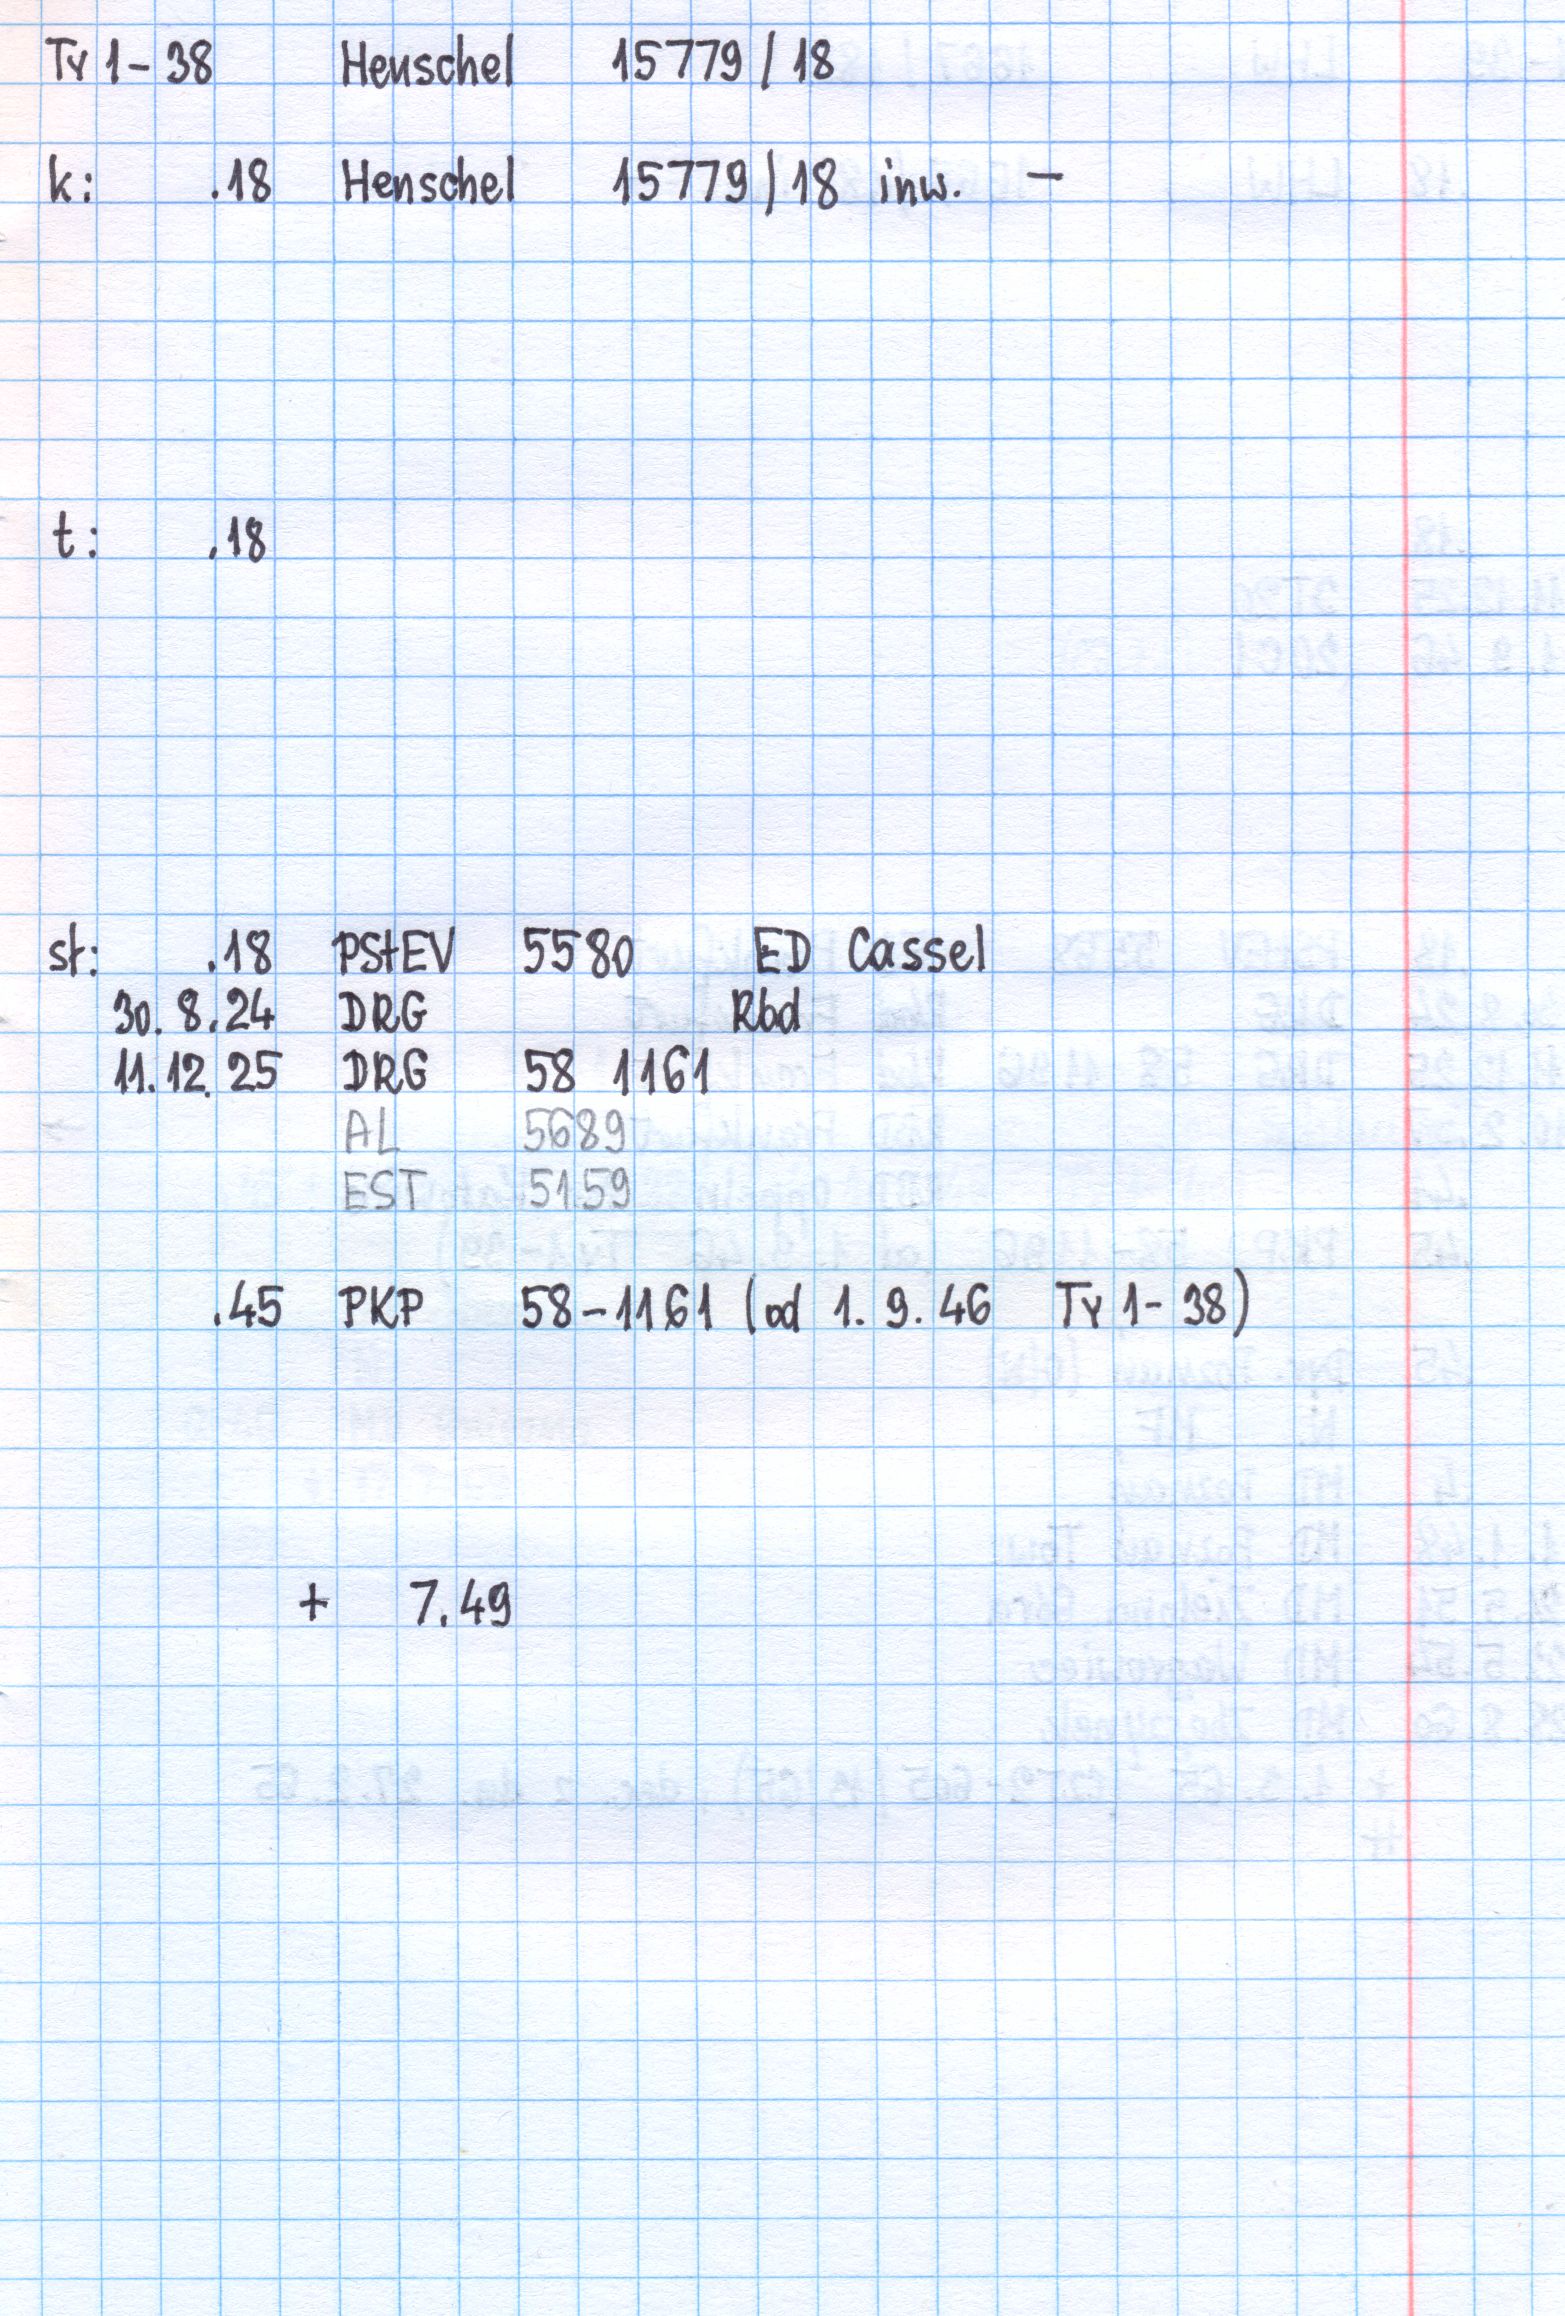 Ty 1-38 Henschel 15779/18
k: .18 Henschel 15779/18 inw. –
t: .18
st: .18 PStEV 5580 ED Cassel
30. 8.24 DRG Rbd
11.12.25 DRG 58 1161
AL 5689
EST 5159
.45 PKP 58-1161 (od 1.9.46 Ty 1-38)
+ 7.49